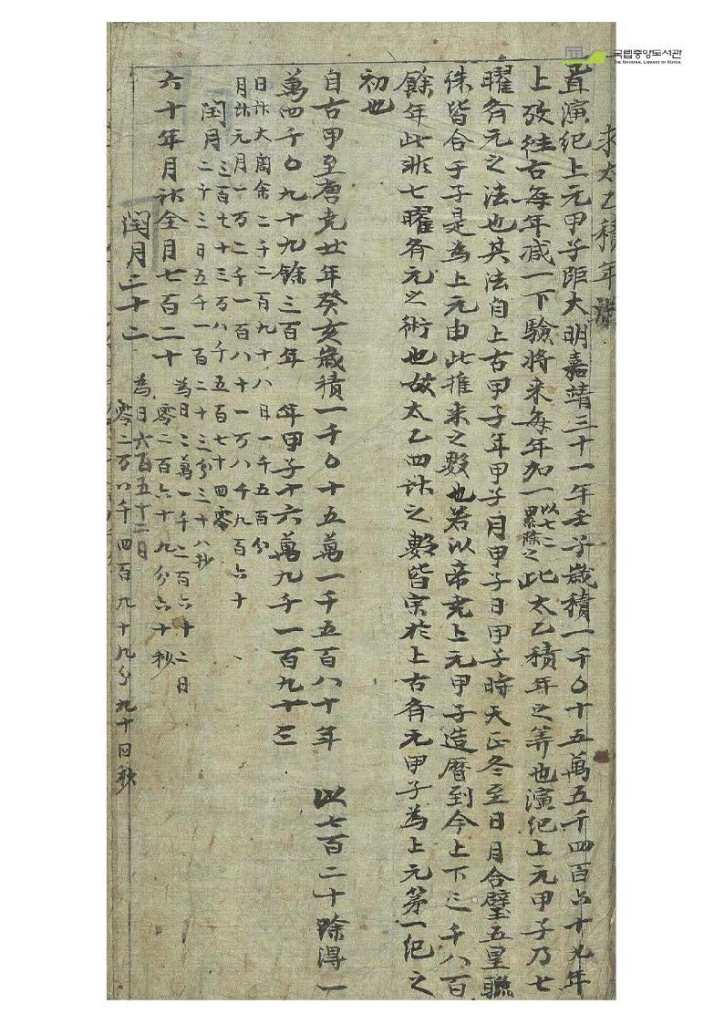 국립중앙도서관
THE NATIONAL LIBRARY OF KOREA
求太乙積年
置演紀上元甲子距大明嘉靖三十一年壬子歲積一千〇十五萬五千四百六十九年
上攷往古每年减一下驗將来每年加一以七二累除之此太乙積年之筭也演紀上元甲子乃七
曜齊元之法也其法自上古甲子年甲子月甲子日甲子時天正冬至日月合璧五星聯
珠皆合于子是為上元由此推来之數也若以帝尭上元甲子造曆到今上下三千八百
餘年此非七曜齊元之術也故太乙四計之數皆宗於上古齊元甲子為上元第一紀之
初也
自古甲至唐尭廿年癸亥歲積一千〇十五萬一千五百八十年 以七百二十除淂一
萬四千〇九十九餘三百年 年甲子十六萬九千一百九十三
日計大閏余二千二百九十八 日一千五百分
月計元月一万二千一百八十一万八千九百六十
三百七十三万八千五百七十四零
閏月二千三日五千一百二十三分三十八抄
為日二萬一千二百六十二日
六十年月計全月七百二十 零二百六十九分六十秒
為日六百五十二日
閏月二十二 零二万八千四百九十九分九十四秒